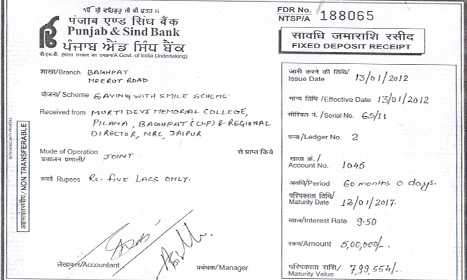 पंजाब एण्ड सिंध बैंक
Punjab & Sind Bank
ਪੰਜਾਬ ਐਂਡ ਸਿੰਧ ਬੈਂਕ
(A Govt. of India Undertaking)
FDR No.
NTSP/A 188065
सावधि जमाराशि रसीद
FIXED DEPOSIT RECEIPT
शाखा/Branch BAGHPAT
MEERUT ROAD
योजना/Scheme SAVING WITH SMILE SCHEME
Received from MURTI DEVI MEMORIAL COLLEGE,
PILANA, BAGHPAT (UP) & REGIONAL
DIRECTOR, NRC, JAIPUR
Mode of Operation
प्रचालन प्रणाली/ JOINT से प्राप्त किये
रूपये Rupees Rs. FIVE LACS ONLY.
लेखाकार/Accountant प्रबंधक/Manager
अहस्तांतरणीय / NON TRANSFERABLE
जारी करने की तिथि/
Issue Date 13/01/2012
मान्य तिथि/Effective Date 13/01/2012
सीरियल नं./Serial No. 65/11
पन्ना/Ledger No. 2
खाता क्रं./
Account No. 1045
अवधि/Period 60 months 0 days.
परिपक्वता तिथि/
Maturity Date 13/01/2017
ब्याज/Interest Rate 9.50
रकम/Amount 5,00,000/-
परिपक्वता राशि/
Maturity Value 7,99,554/-